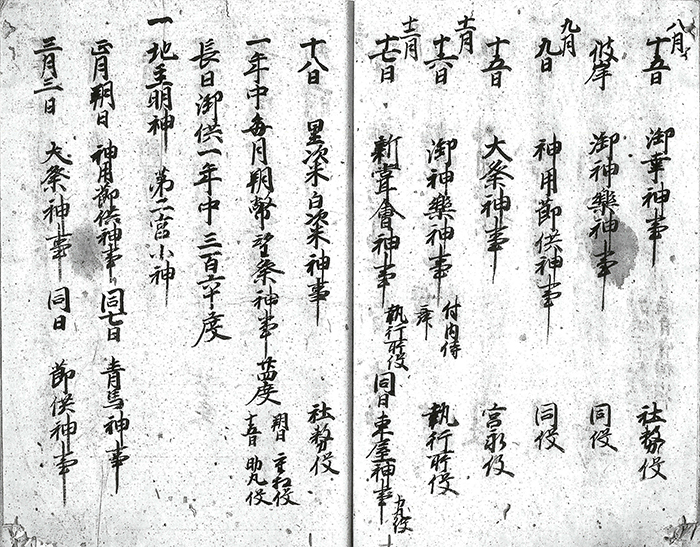 八月
十五日 御幸神事 社務役
彼岸 御神樂神事 同役
九月
九日 神用節供神事 同役
十五日 大祭神事 宮永役
十一月
十六日 御神樂神事 付内侍 舞 執行所役
十二月
十七日 新嘗會神事 執行所役 同日 東屋神事
十八日 黒次米白次米神事 社務役
一年中毎月朔幣望祭神事 廿四度 朔日
十五日 助丸役
長日御供一年中三百六十度
一 地主明神 第二宮小神
正月朔日 神用節供神事 同七日 青馬神事
三月三日 大祭神事 同日 節供神事